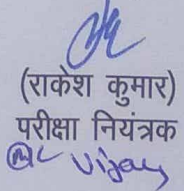 (राकेश कुमार)
परीक्षा नियंत्रक
Vijay